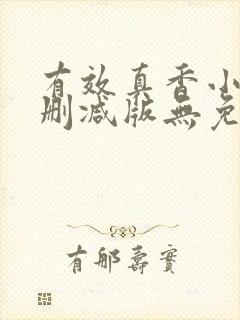 有效真香小
删减版無免
有邮壽實